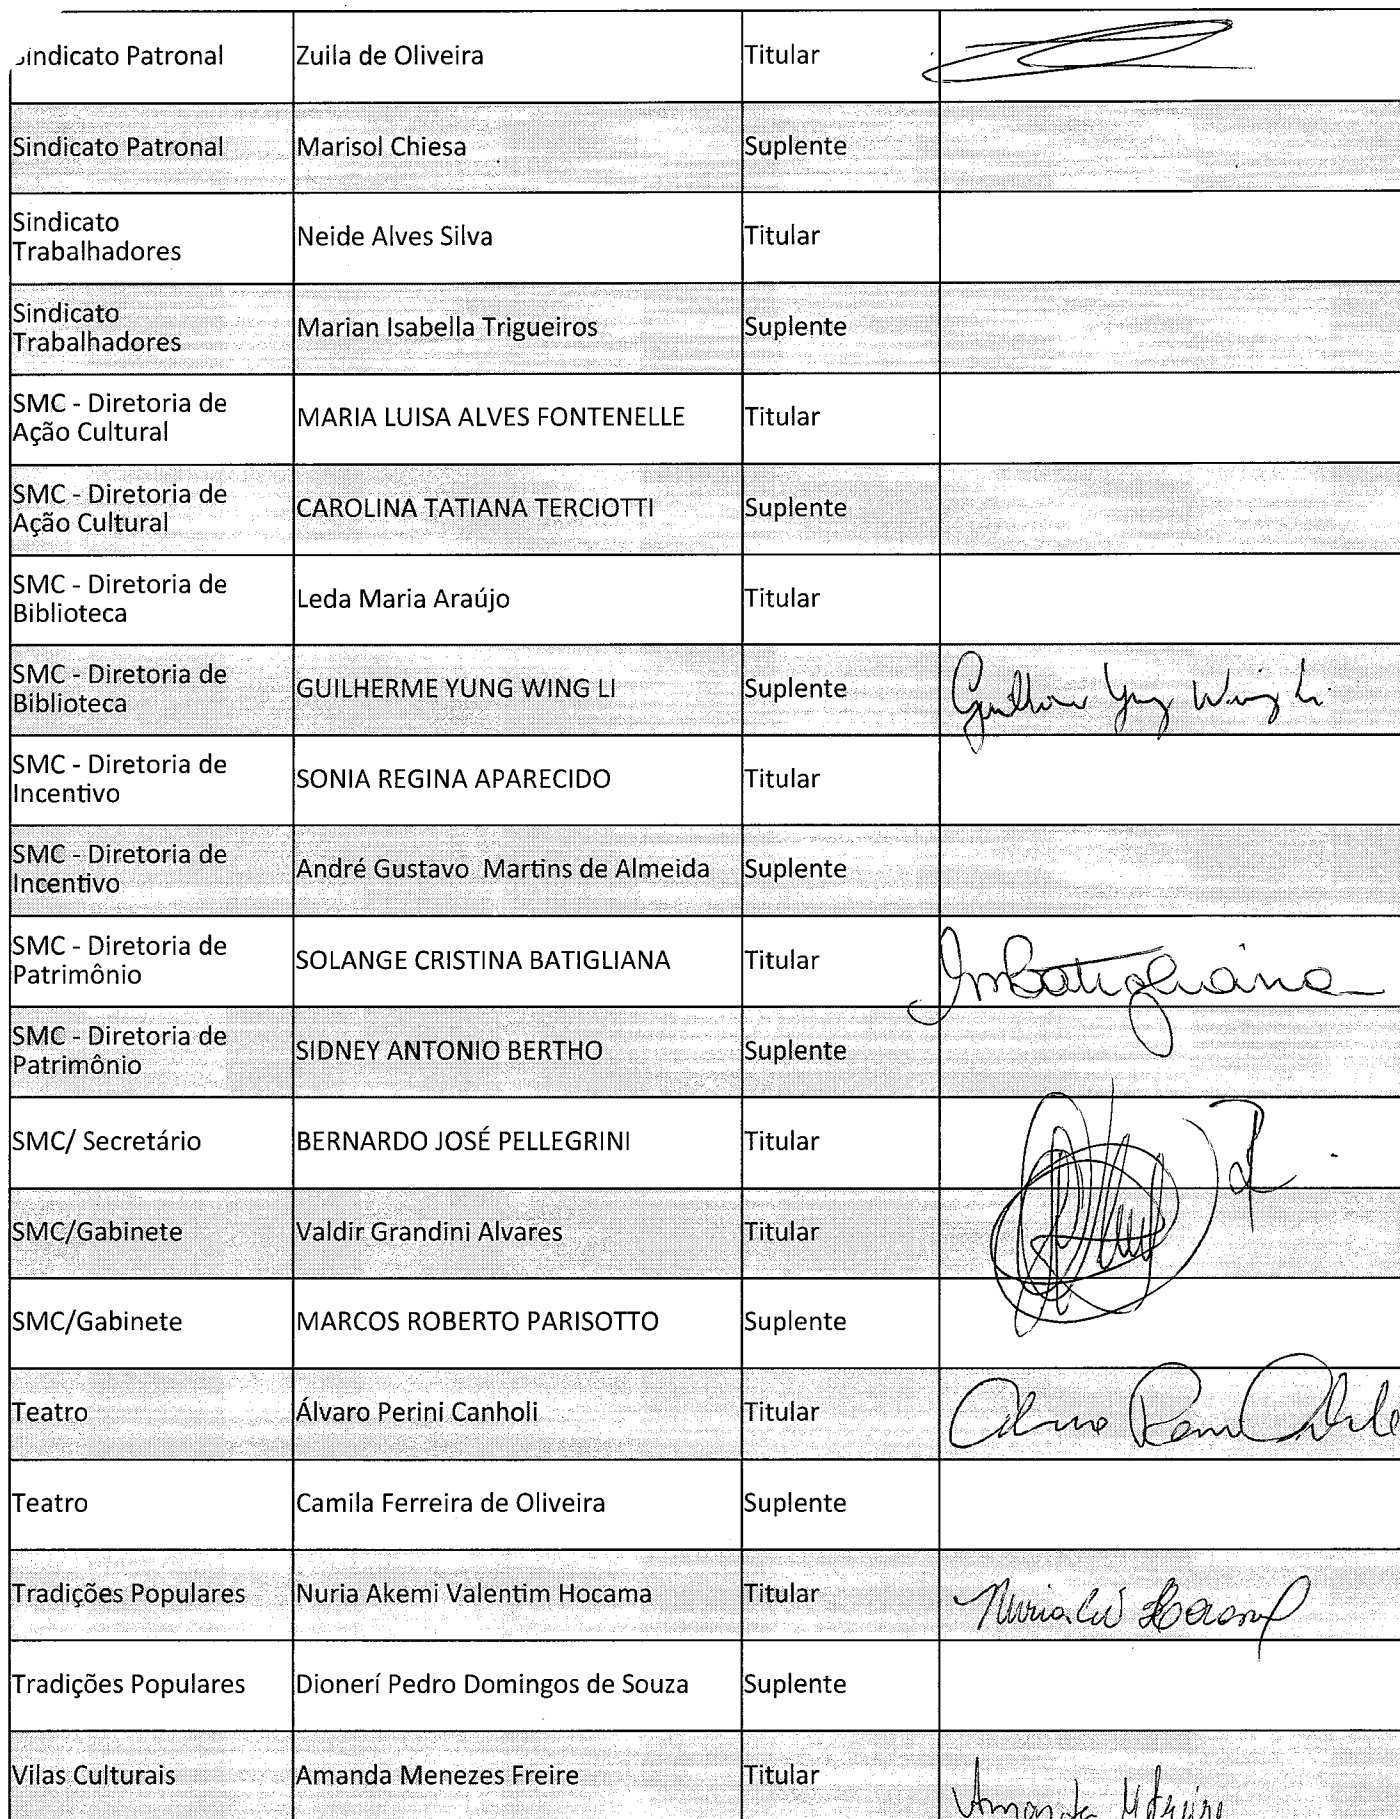 Sindicato Patronal Zuila de Oliveira Titular
Sindicato Patronal Marisol Chiesa Suplente
Sindicato
Trabalhadores Neide Alves Silva Titular
Sindicato
Trabalhadores Marian Isabella Trigueiros Suplente
SMC - Diretoria de
Ação Cultural MARIA LUISA ALVES FONTENELLE Titular
SMC - Diretoria de
Ação Cultural CAROLINA TATIANA TERCIOTTI Suplente
SMC - Diretoria de
Biblioteca Leda Maria Araújo Titular
SMC - Diretoria de
Biblioteca GUILHERME YUNG WING LI Suplente Guilherme Yung Wing Li
SMC - Diretoria de
Incentivo SONIA REGINA APARECIDO Titular
SMC - Diretoria de
Incentivo André Gustavo Martins de Almeida Suplente
SMC - Diretoria de
Patrimônio SOLANGE CRISTINA BATIGLIANA Titular Batigliana
SMC - Diretoria de
Patrimônio SIDNEY ANTONIO BERTHO Suplente
SMC/ Secretário BERNARDO JOSÉ PELLEGRINI Titular
SMC/Gabinete Valdir Grandini Alvares Titular
SMC/Gabinete MARCOS ROBERTO PARISOTTO Suplente
Teatro Álvaro Perini Canholi Titular
Teatro Camila Ferreira de Oliveira Suplente
Tradições Populares Nuria Akemi Valentim Hocama Titular
Tradições Populares Dionerí Pedro Domingos de Souza Suplente
Vilas Culturais Amanda Menezes Freire Titular Amanda M Freire